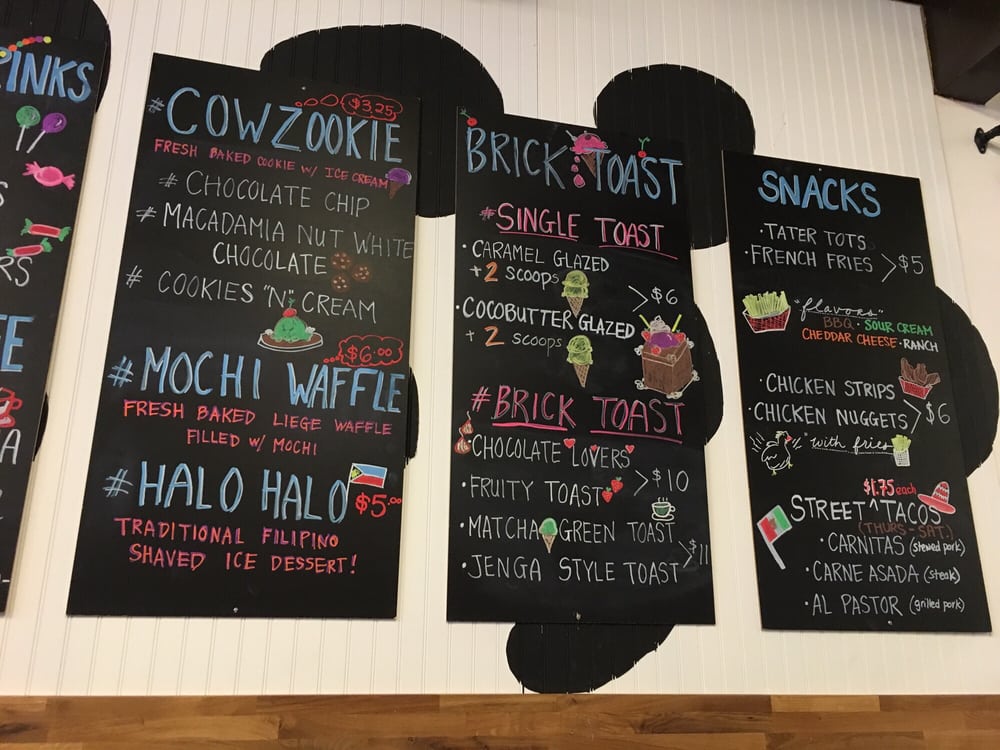 INKS
S
RS
E
A
# COWZOOKIE $3.25
FRESH BAKED COOKIE W/ ICE CREAM
# CHOCOLATE CHIP
# MACADAMIA NUT WHITE
CHOCOLATE
# COOKIES "N" CREAM
$6.00
# MOCHI WAFFLE
FRESH BAKED LIEGE WAFFLE
FILLED W/ MOCHI
# HALO HALO $5.00
TRADITIONAL FILIPINO
SHAVED ICE DESSERT!
BRICK TOAST
# SINGLE TOAST
• CARAMEL GLAZED
+ 2 SCOOPS
> $6
• COCOBUTTER GLAZED
+ 2 SCOOPS
# BRICK TOAST
• CHOCOLATE LOVERS
> $10
• FRUITY TOAST
• MATCHA GREEN TOAST
> $11
• JENGA STYLE TOAST
SNACKS
• TATER TOTS
• FRENCH FRIES > $5
"flavors"
BBQ • SOUR CREAM
CHEDDAR CHEESE • RANCH
• CHICKEN STRIPS
• CHICKEN NUGGETS > $6
"with fries"
$1.75 each
STREET ^ TACOS
(THURS - SAT.)
• CARNITAS (stewed pork)
• CARNE ASADA (steak)
• AL PASTOR (grilled pork)